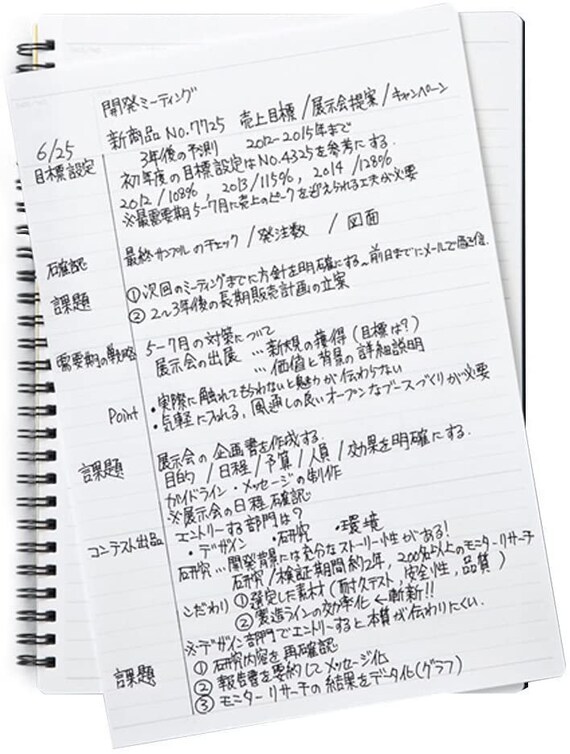 開発ミーティング
6/25 新商品 No.7725 売上目標/展示会提案/キャンペーン
目標設定 3年後の予測 2012-2015年まで
初年度の目標設定はNo.4325を参考にする.
2012/108%, 2013/115%, 2014/128%
※最需要期5-7月に売上のピークを迎えられる工夫が必要
確認 最終サンプルのチェック/発注数 /図面
課題 ①次回のミーティングまでに方針を明確にする〜前日までにメールで返信.
②2〜3年後の長期販売計画の立案
需要期の戦略 5-7月の対策について
展示会の出展 …新規の獲得(目標は?)
…価値と背景の詳細説明
Point ・実際に触れてもらわないと魅力が伝わらない
・気軽に入れる, 風通しの良いオープンなブースづくりが必要
課題 展示会の企画書を作成する.
目的/日程/予算/人員/効果を明確にする.
ガイドライン・メッセージの制作
※展示会の日程確認
コンテスト出品 エントリーする部門は?
・デザイン ・研究 ・環境
研究…開発背景には充分なストーリー性がある!
研究/検証期間約2年, 200名以上のモニターリサーチ
こだわり ①選定した素材(耐久テスト, 安全性, 品質)
②製造ラインの効率化 ←斬新!!
※デザイン部門でエントリーすると本質が伝わりにくい.
課題 ①研究内容を再確認
②報告書を要約してメッセージ化
③モニターリサーチの結果をデータ化(グラフ)